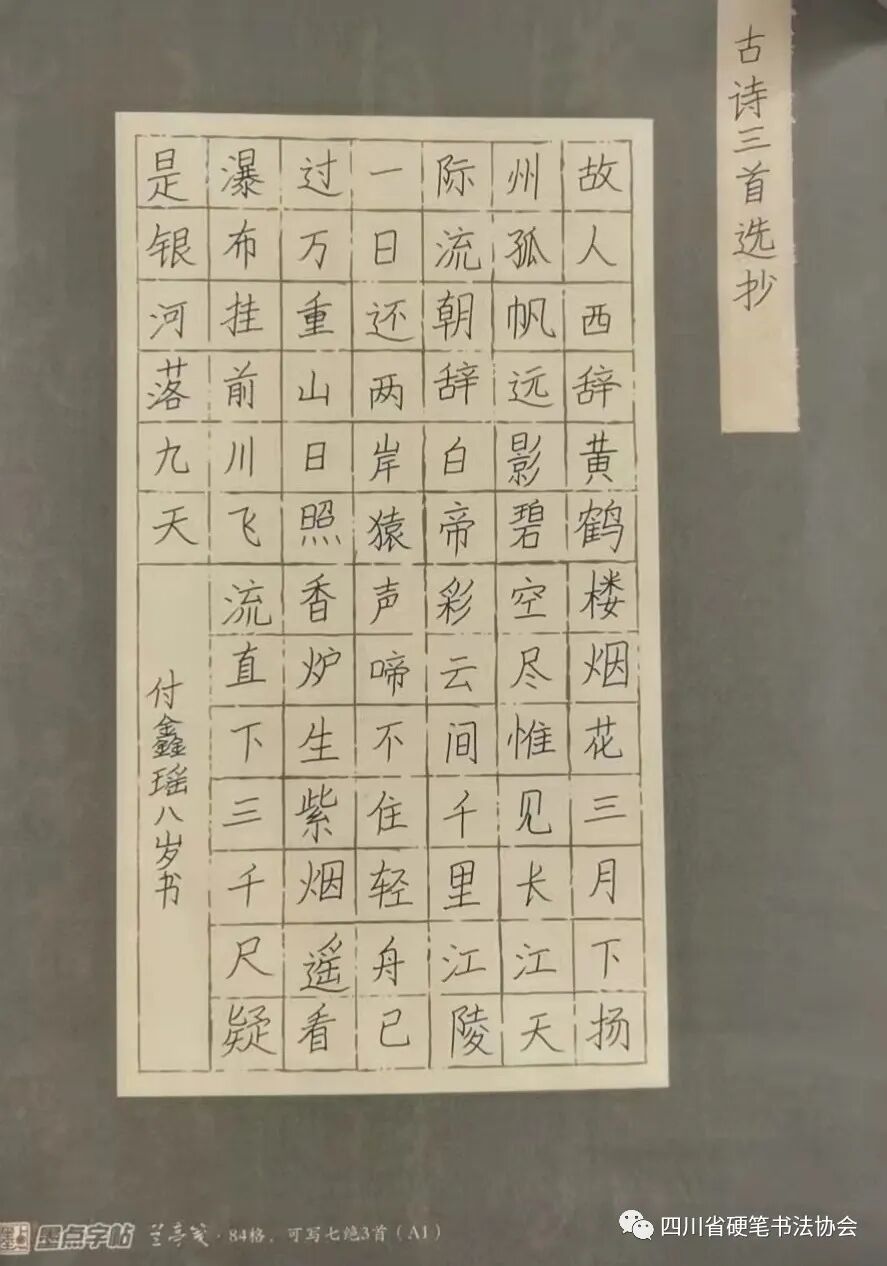 古诗三首选抄
故人西辞黄鹤楼烟花三月下扬
州孤帆远影碧空尽惟见长江天
际流朝辞白帝彩云间千里江陵
一日还两岸猿声啼不住轻舟已
过万重山日照香炉生紫烟遥看
瀑布挂前川飞流直下三千尺疑
是银河落九天
付鑫瑶八岁书
墨点字帖 兰亭笺·84格,可写七绝3首(A1)
四川省硬笔书法协会